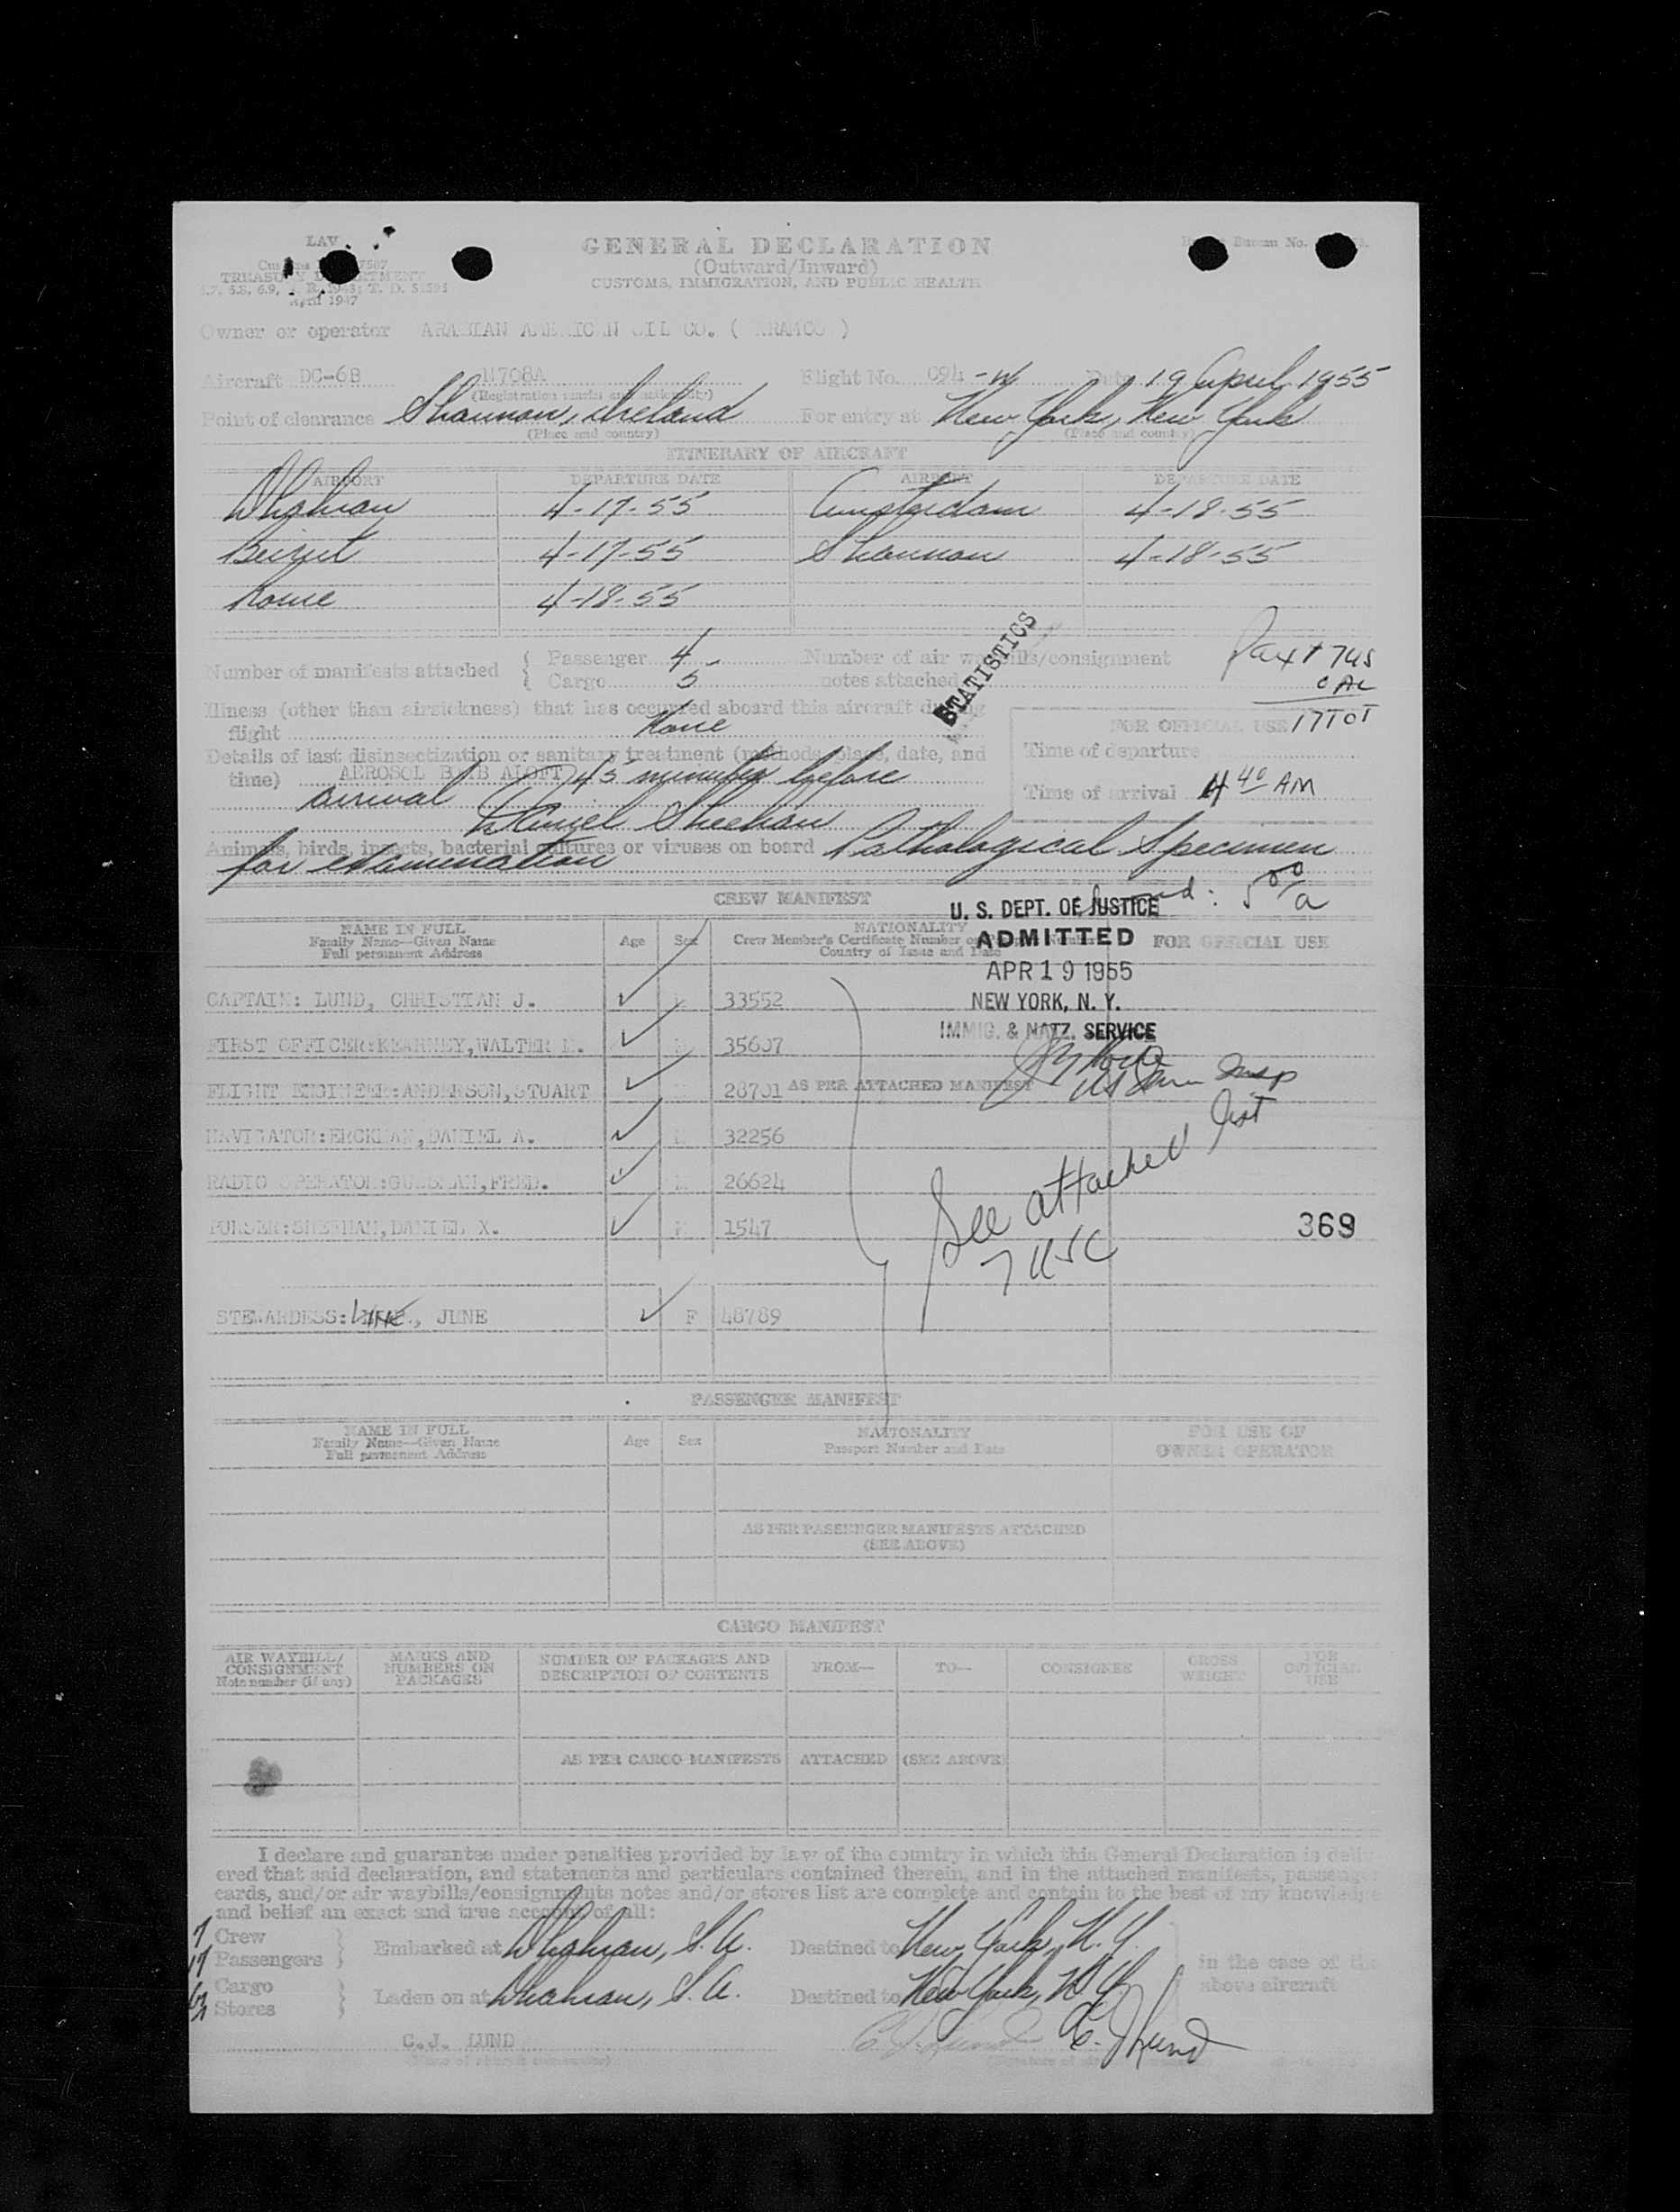 LAV
GENERAL DECLARATION
(Outward/Inward)
CUSTOMS, IMMIGRATION, AND PUBLIC HEALTH
TREASURY DEPARTMENT
April 1947
Owner or operator ARABIAN AMERICAN OIL CO. ( ARAMCO )
Aircraft DC-6B N708A Flight No. 094-W Date 19 April 1955
(Registration marks and nationality)
Point of clearance Shannon, Ireland For entry at New York, New York
(Place and country) (Place and country)
ITINERARY OF AIRCRAFT
AIRPORT DEPARTURE DATE AIRPORT DEPARTURE DATE
Dhahran 4-17-55 Amsterdam 4-18-55
Beirut 4-17-55 Shannon 4-18-55
Rome 4-18-55
STATISTICS
Number of manifests attached Passenger 4 Number of air waybills/consignment
Cargo 5 notes attached
17 TOT
Illness (other than airsickness) that has occurred aboard this aircraft during
flight None
FOR OFFICIAL USE
Details of last disinsectization or sanitary treatment (methods, place, date, and
time) AEROSOL BOMB ALOFT 45 minutes before
arrival
Time of departure
Time of arrival 4 40 AM
Daniel Sheehan
Animals, birds, insects, bacterial cultures or viruses on board Pathological Specimen
for examination
CREW MANIFEST
U. S. DEPT. OF JUSTICE
ADMITTED
APR 19 1955
NEW YORK, N. Y.
IMMIG. & NATZ. SERVICE
NAME IN FULL
Family Name—Given Name
Full permanent Address
Age Sex
NATIONALITY
Crew Member's Certificate Number or Passport Number
Country of Issue and Date
FOR OFFICIAL USE
CAPTAIN: LUND, CHRISTIAN J. M 33552
FIRST OFFICER:KEARNEY,WALTER M 35607
FLIGHT ENGINEER:ANDERSON,STUART M 28701 AS PER ATTACHED MANIFEST
NAVIGATOR:ERCKMAN,DANIEL A. M 32256
RADIO OPERATOR: FRED. M 26624
PURSER:SHEEHAN,DANIEL X. M 1547
See attached list
7 USC
369
STEWARDESS: JUNE F 48789
PASSENGER MANIFEST
NAME IN FULL
Family Name—Given Name
Full permanent Address
Age Sex
NATIONALITY
Passport Number and Date
FOR USE OF
OWNER OPERATOR
AS PER PASSENGER MANIFESTS ATTACHED
(SEE ABOVE)
CARGO MANIFEST
AIR WAYBILL/
CONSIGNMENT
Note number (if any)
MARKS AND
NUMBERS ON
PACKAGES
NUMBER OF PACKAGES AND
DESCRIPTION OF CONTENTS
FROM— TO— CONSIGNEE
GROSS
WEIGHT
FOR
OFFICIAL
USE
AS PER CARGO MANIFESTS ATTACHED (SEE ABOVE)
I declare and guarantee under penalties provided by law of the country in which this General Declaration is deliv
ered that said declaration, and statements and particulars contained therein, and in the attached manifests, passenger
cards, and/or air waybills/consignments notes and/or stores list are complete and contain to the best of my knowledge
and belief an exact and true account of all:
7 Crew
17 Passengers
Embarked at Dhahran, S.A. Destined to New York, N.Y.
in the case of the
above aircraft
Cargo
Stores
Laden on at Dhahran, S.A. Destined to New York, N.Y.
C.J. LUND C. J. Lund C. J. Lund